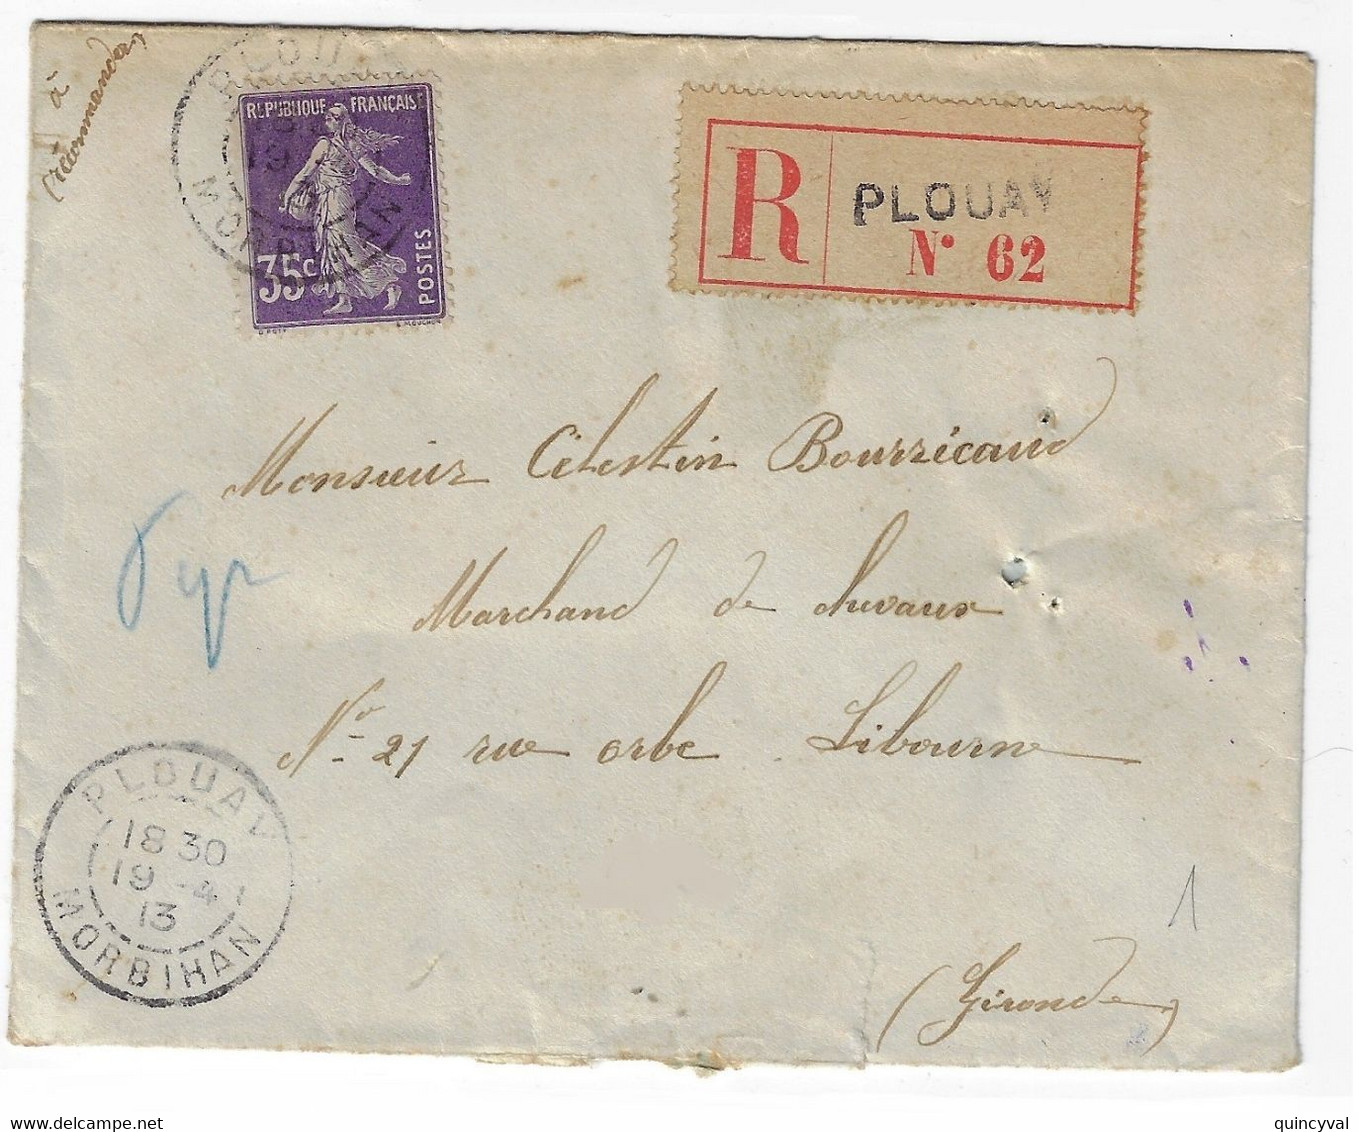 à
recommander
PLOUAY
MORBIHAN
REPUBLIQUE FRANÇAISE
35c
POSTES
E. MOUCHON
R
PLOUAY
N° 62
Monsieur Célestin Bourricaud
Marchand de chevaux
N° 21 rue orbe Libourne
(Gironde)
PLOUAY
18 30
19 - 4
13
MORBIHAN
1
delcampe.net
quincyval